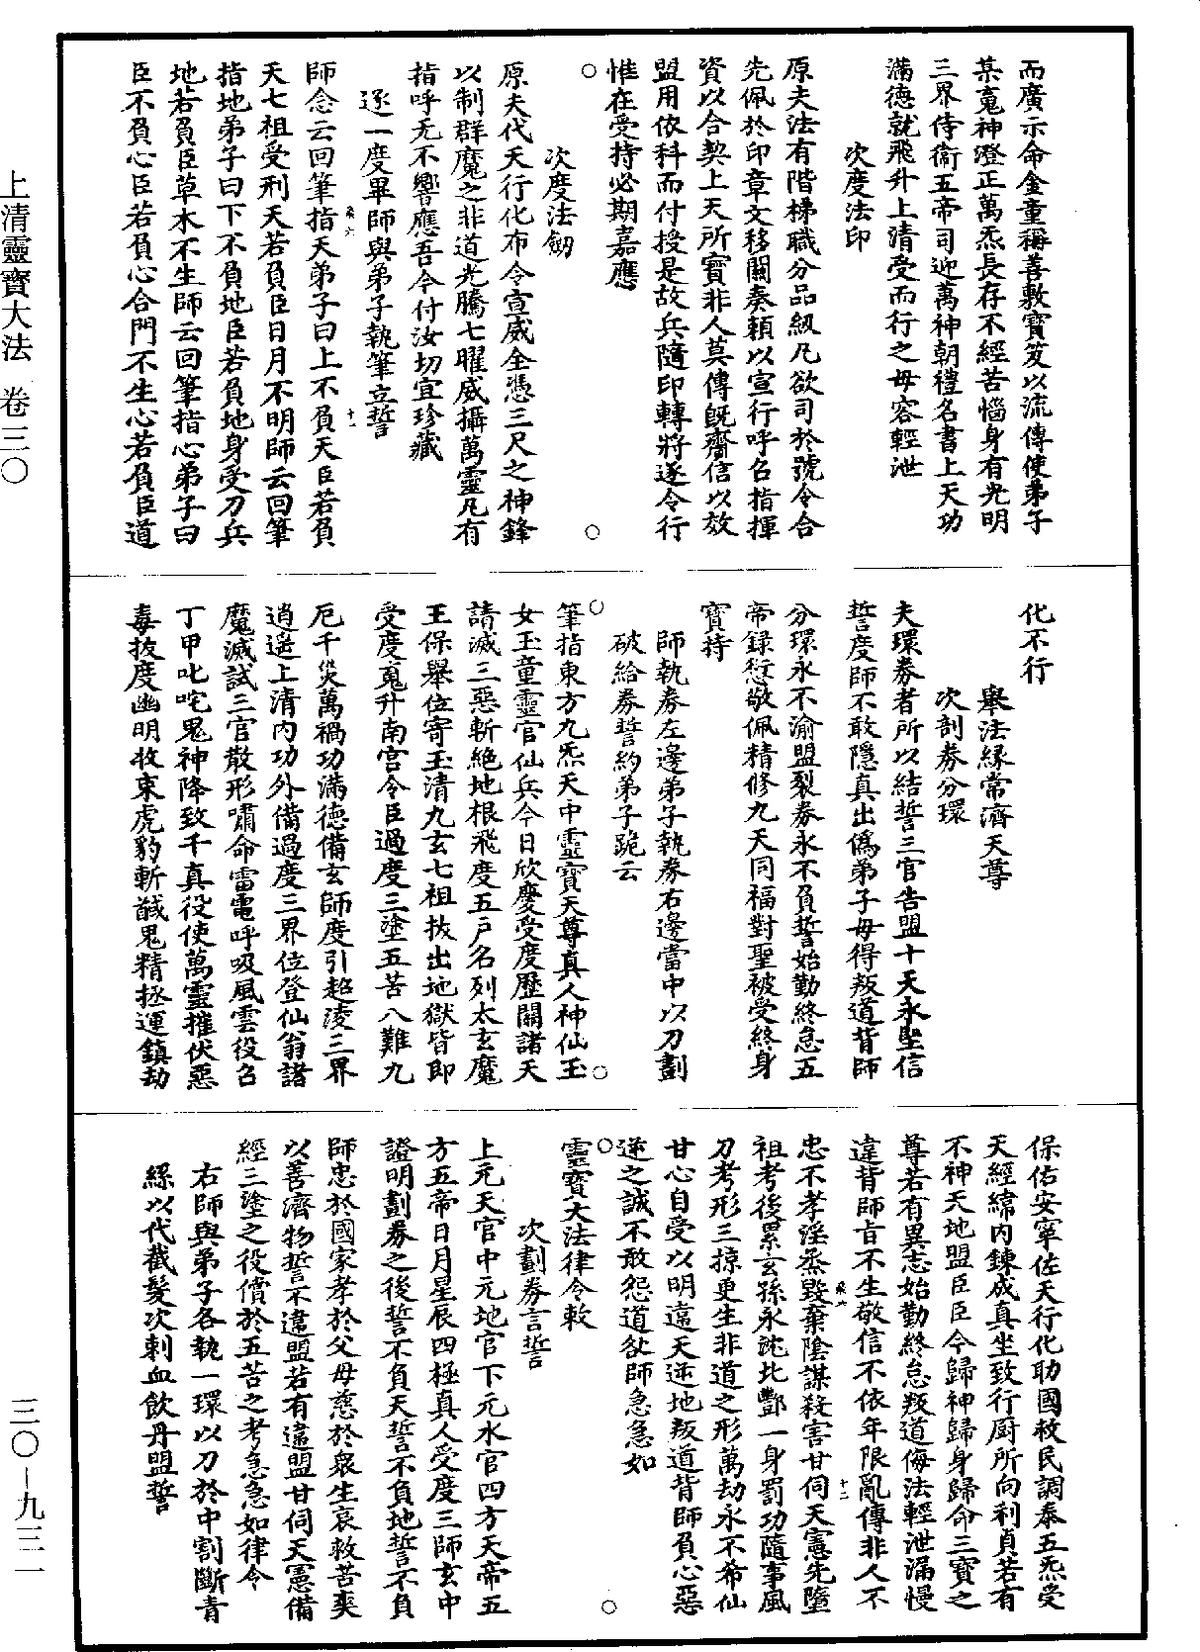 上清靈寶大法　卷三〇
三〇－九三二
而廣示命金童稱善敷寶笈以流傳使弟子
某䰟神澄正萬炁長存不經苦惱身有光明
三界侍衞五帝司迎萬神朝禮名書上天功
滿德就飛升上清受而行之毋容輕泄
次度法印
原夫法有階梯職分品級凡欲司於號令合
先佩於印章文移關奏賴以宣行呼召指揮
資以合契上天所寶非人莫傳旣齎信以效
盟用依科而付授是故兵隨印轉將逐令行
惟在受持必期嘉應
次度法劒
原夫代天行化布令宣威全憑三尺之神鋒
以制群魔之非道光騰七曜威攝萬靈凡有
指呼无不響應吾今付汝切宜珍藏
逐一度畢師與弟子執筆立誓
師念云回筆指天弟子曰上不負天臣若負
天七祖受刑天若負臣日月不明師云回筆
指地弟子曰下不負地臣若負地身受刀兵
地若負臣草木不生師云回筆指心弟子曰
臣不負心臣若負心合門不生心若負臣道
化不行
舉法緣常濟天尊
次剖券分環
夫環券者所以結誓三官告盟十天永堅信
誓度師不敢隱真出僞弟子毋得叛道背師
分環永不渝盟裂券永不負誓始勤終怠五
帝錄愆敬佩精修九天同福對聖被受終身
寶持
師執券左邊弟子執券右邊當中以刀劃
破給券誓約弟子跪云
筆指東方九炁天中靈寶天尊真人神仙玉
女玉童靈官仙兵今日欣慶受度歷關諸天
請滅三惡斬絶地根飛度五戶名列太玄魔
王保舉位寄玉清九玄七祖拔出地獄皆即
受度䰟升南宫令臣過度三塗五苦八難九
厄千災萬禍功滿德備玄師度引超淩三界
逍遥上清内功外備過度三界位登仙翁諸
魔滅試三官散形嘯命雷電呼吸風雲役召
丁甲叱咤鬼神降致千真役使萬靈摧伏惡
毒拔度幽明收束虎豹斬馘鬼精拯運鎮劫
保佑安寧佐天行化助國救民調泰五炁受
天經緯内鍊成真坐致行厨所向利貞若有
不神天地盟臣臣今歸神歸身歸命三寶之
尊若有異志始勤終怠叛道侮法輕泄漏慢
違背師旨不生敬信不依年限亂傳非人不
忠不孝淫烝毀棄陰謀殺害甘伺天憲先墮
祖考後累玄孫永沈北酆一身罰功隨事風
刀考形三掠更生非道之形萬劫永不希仙
甘心自受以明違天逆地叛道背師負心惡
逆之誠不敢怨道咎師急急如
靈寶大法律令敕
次劃券言誓
上元天官中元地官下元水官四方天帝五
方五帝日月星辰四極真人受度三師玄中
證明劃券之後誓不負天誓不負地誓不負
師忠於國家孝於父母慈於衆生哀救苦爽
以善濟物誓不違盟若有違盟甘伺天憲備
經三塗之役償於五苦之考急急如律令
右師與弟子各執一環以刀於中割斷青
絲以代截髮次刺血飲丹盟誓